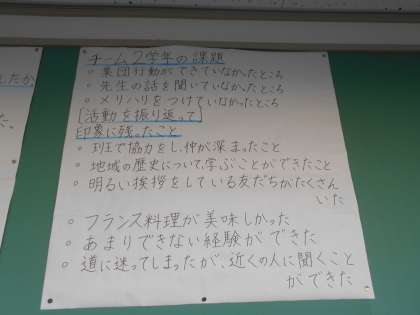 したか
た、
チーム2学年の課題
○集団行動ができていなかったところ
○先生の話を聞いていなかったところ
○メリハリをつけていなかったところ
[活動を振り返って]
印象に残ったこと
○班で協力をし、仲が深まったこと
○地域の歴史について学ぶことができたこと
○明るい挨拶をしている友だちがたくさん
いた
○フランス料理が美味しかった
○あまりできない経験ができた
○道に迷ってしまったが、近くの人に聞くこと
ができた